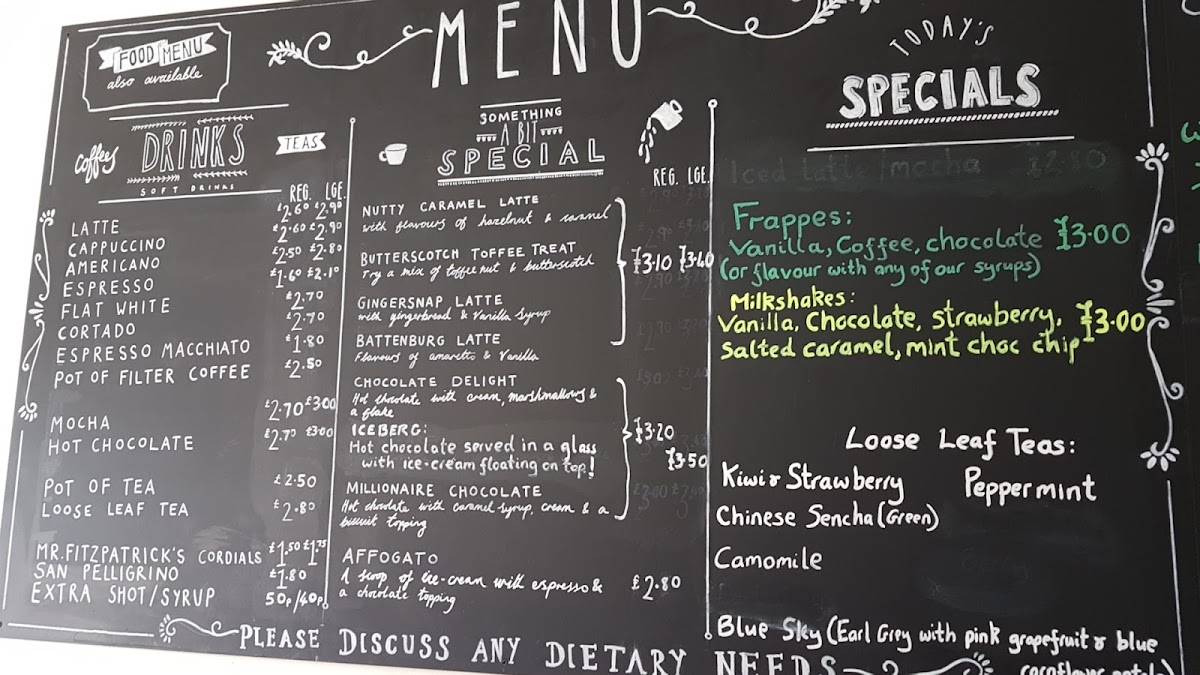 FOOD MENU
also available
MENU
coffees
DRINKS
TEAS
SOFT DRINKS
REG. LGE.
LATTE £2.60 £2.90
CAPPUCCINO £2.60 £2.90
AMERICANO £2.50 £2.80
ESPRESSO £1.60 £2.10
FLAT WHITE £2.70
CORTADO £2.70
ESPRESSO MACCHIATO £1.80
POT OF FILTER COFFEE £2.50
MOCHA £2.70 £3.00
HOT CHOCOLATE £2.70 £3.00
POT OF TEA £2.50
LOOSE LEAF TEA £2.80
MR. FITZPATRICK'S CORDIALS £1.50 £1.75
SAN PELLIGRINO £1.80
EXTRA SHOT/SYRUP 50p/40p
SOMETHING
A BIT
SPECIAL
REG. LGE.
NUTTY CARAMEL LATTE
with flavours of hazelnut & caramel
BUTTERSCOTCH TOFFEE TREAT
Try a mix of toffee nut & butterscotch
£3.10 £3.40
GINGERSNAP LATTE
with gingerbread & Vanilla Syrup
BATTENBURG LATTE
Flavours of amaretto & Vanilla
CHOCOLATE DELIGHT
Hot chocolate with cream, marshmallows &
a flake
ICEBERG: £3.20
Hot chocolate served in a glass
with ice-cream floating on top! £3.50
MILLIONAIRE CHOCOLATE
Hot chocolate with caramel syrup, cream & a
biscuit topping
AFFOGATO
1 scoop of ice-cream with espresso & £2.80
a chocolate topping
TODAY'S
SPECIALS
Iced latte/mocha £2.80
Frappes:
Vanilla, Coffee, chocolate £3.00
(or flavour with any of our syrups)
Milkshakes:
Vanilla, Chocolate, strawberry, £3.00
Salted caramel, mint choc chip
Loose Leaf Teas:
Kiwi & Strawberry Peppermint
Chinese Sencha (Green)
Camomile
Blue Sky (Earl Grey with pink grapefruit & blue
cornflower petals)
PLEASE DISCUSS ANY DIETARY NEEDS